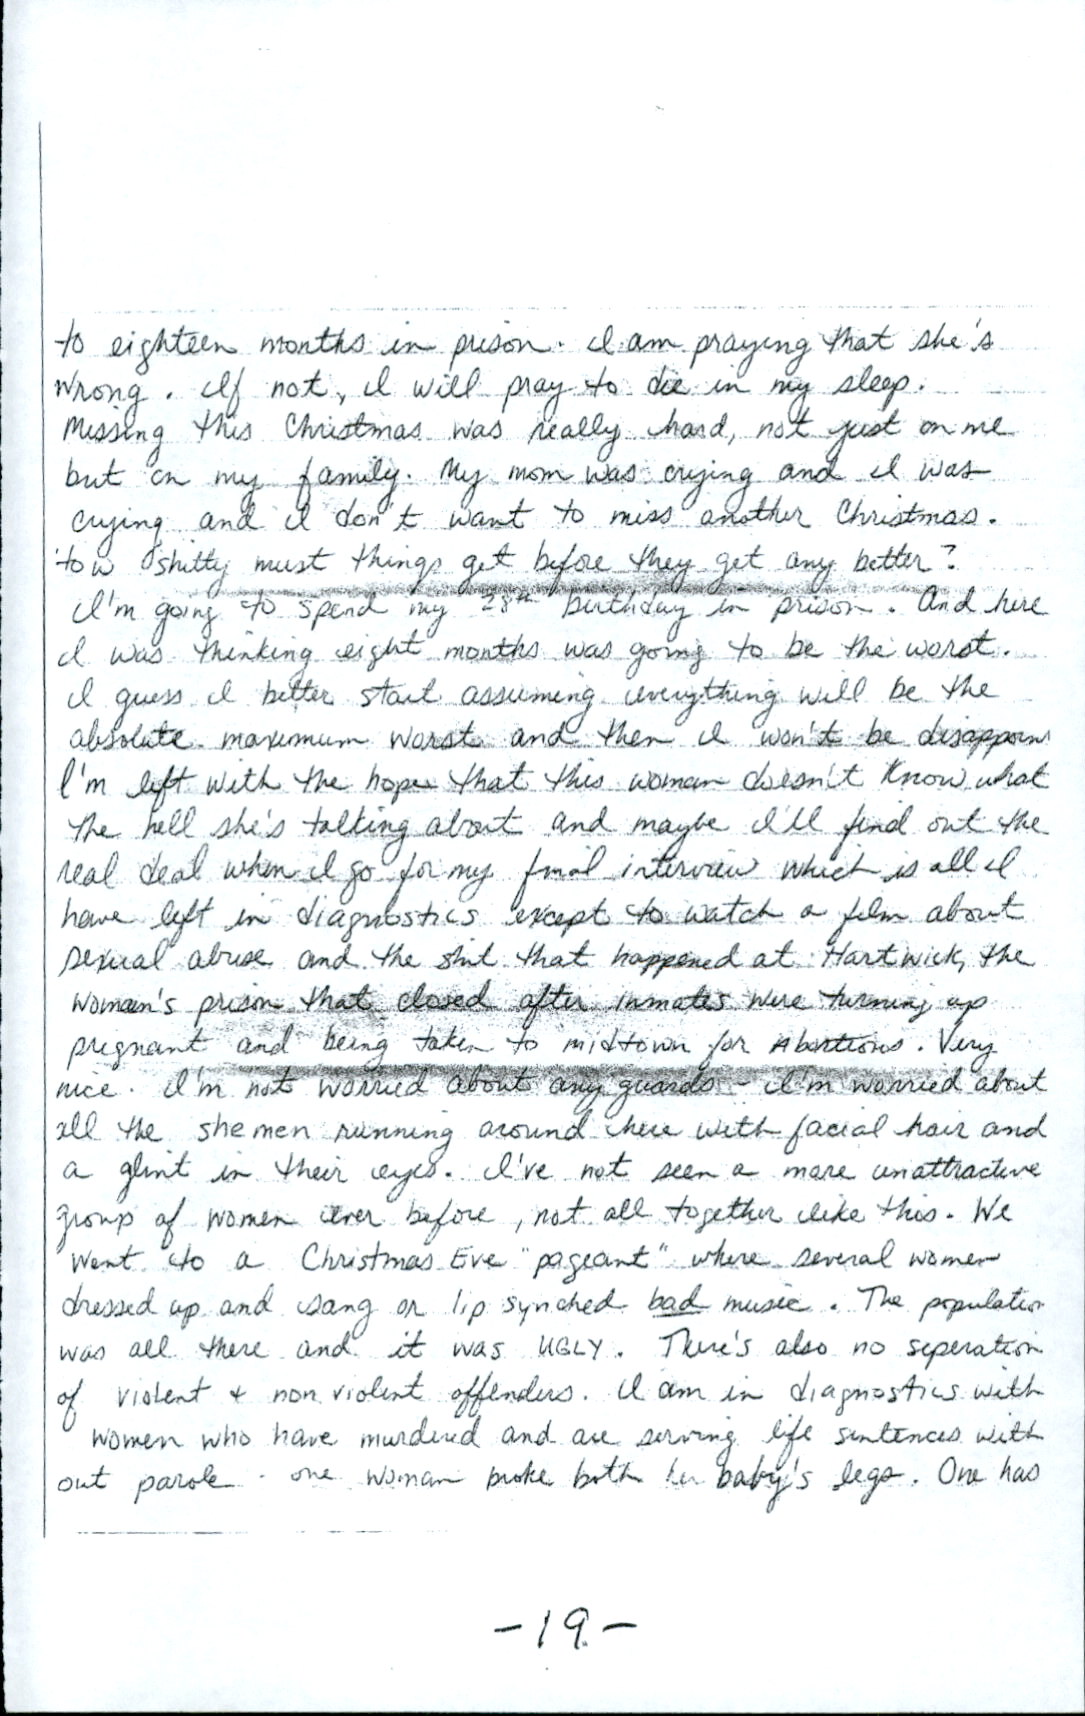 to eighteen months in prison. I am praying that she's
wrong. If not, I will pray to die in my sleep.
Missing this Christmas was really hard, not just on me
but on my family. My mom was crying and I was
crying and I don't want to miss another Christmas.
How shitty must things get before they get any better?
I'm going to spend my 28th birthday in prison. And here
I was thinking eight months was going to be the worst.
I guess I better start assuming everything will be the
absolute maximum worst and then I won't be disappoin
I'm left with the hope that this woman doesn't know what
the hell she's talking about and maybe I'll find out the
real deal when I go for my final interview which is all I
have left in diagnostics except to watch a film about
sexual abuse and the shit that happened at Hartwick, the
woman's prison that closed after inmates were turning up
pregnant and being taken to midtown for Abortions. Very
nice. I'm not worried about any guards - I'm worried about
all the shemen running around here with facial hair and
a glint in their eyes. I've not seen a more unattractive
group of women ever before, not all together like this. We
went to a Christmas Eve "pageant" where several women
dressed up and sang or lip synched bad music. The population
was all there and it was UGLY. There's also no seperation
of violent + non violent offenders. I am in diagnostics with
women who have murdered and are serving life sentences with
out parole. One woman broke both her baby's legs. One has
-19-